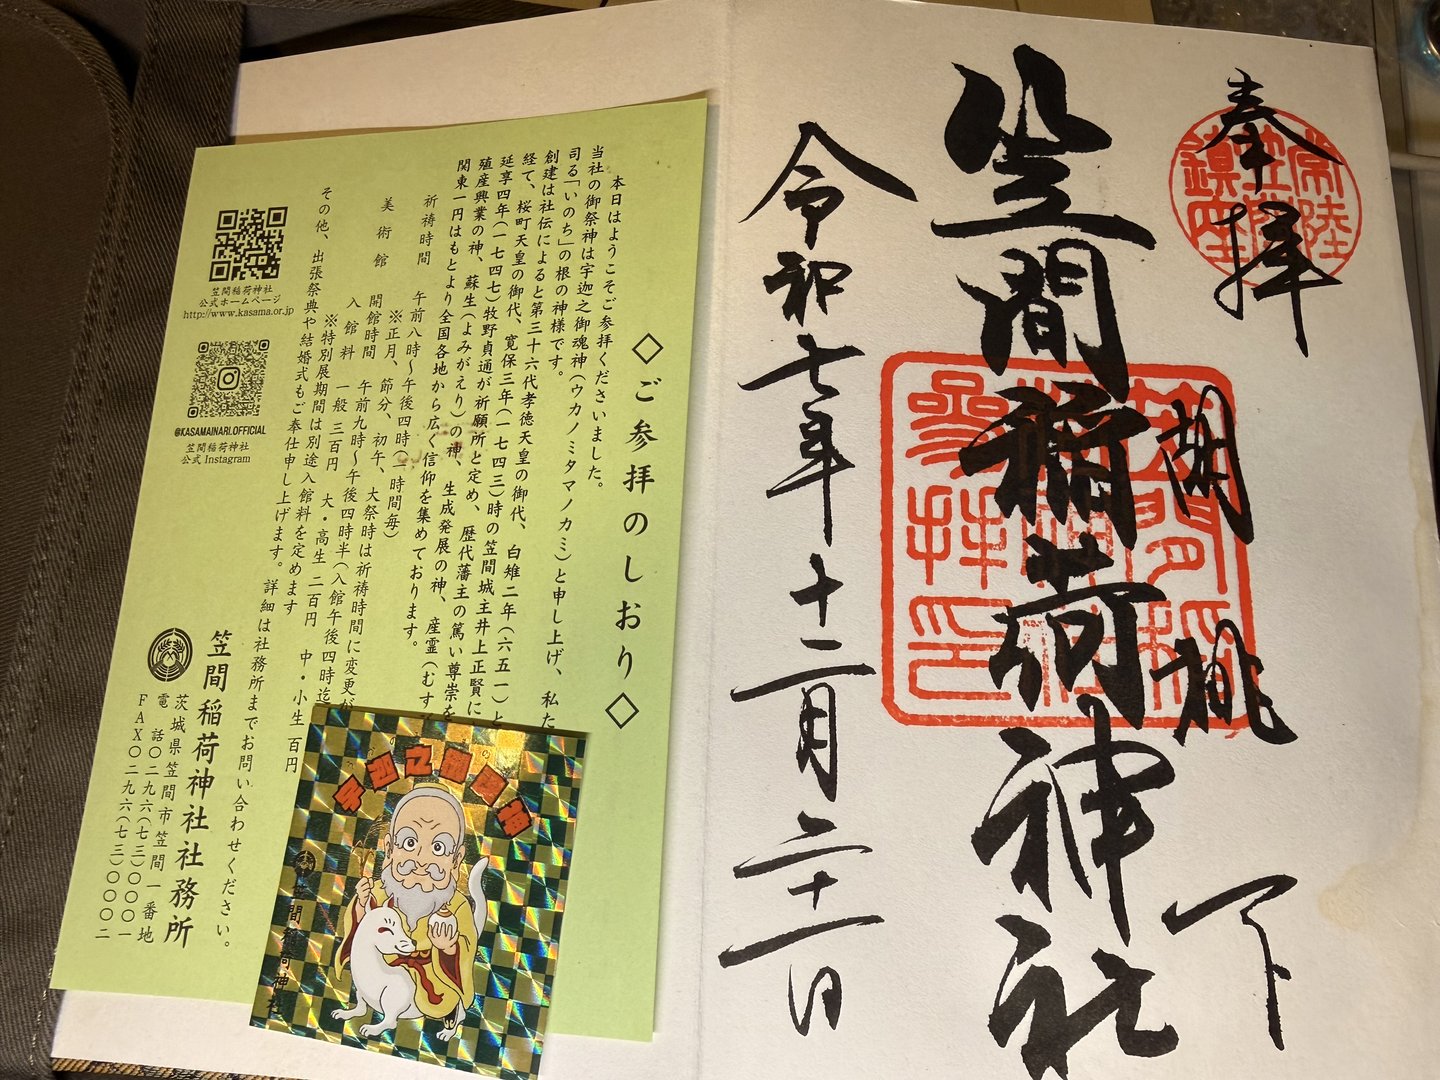 奉拝
常陸
笠間
鎮座
胡桃下
笠間稲荷神社
笠間稲
荷神社
参拝印
令和七年十二月二十一日
◇ご参拝のしおり◇
本日はようこそご参拝くださいました。
当社の御祭神は宇迦之御魂神(ウカノミタマノカミ)と申し上げ、私た
司る「いのち」の根の神様です。
創建は社伝によると第三十六代孝徳天皇の御代、白雉二年(六五一)と
経て、桜町天皇の御代、寛保三年(一七四三)時の笠間城主井上正賢に
延享四年(一七四七)牧野貞通が祈願所と定め、歴代藩主の篤い尊崇を
殖産興業の神、蘇生(よみがえり)の神、生成発展の神、産霊(むす
関東一円はもとより全国各地から広く信仰を集めております。
祈祷時間 午前八時～午後四時(一時間毎)
※正月、節分、初午、大祭時は祈祷時間に変更が
美術館 開館時間 午前九時～午後四時半(入館午後四時迄
入館料 一般 三百円 大・高生 二百円 中・小生 百円
※特別展期間は別途入館料を定めます
その他、出張祭典や結婚式もご奉仕申し上げます。詳細は社務所までお問い合わせください。
笠間稲荷神社社務所
茨城県笠間市笠間一番地
電話〇二九六(七三)〇〇〇一
FAX〇二九六(七三)〇〇〇二
笠間稲荷神社
公式ホームページ
http://www.kasama.or.jp
@KASAMAINARI.OFFICIAL
笠間稲荷神社
公式 Instagram
宇迦之御魂神
笠間稲荷神社